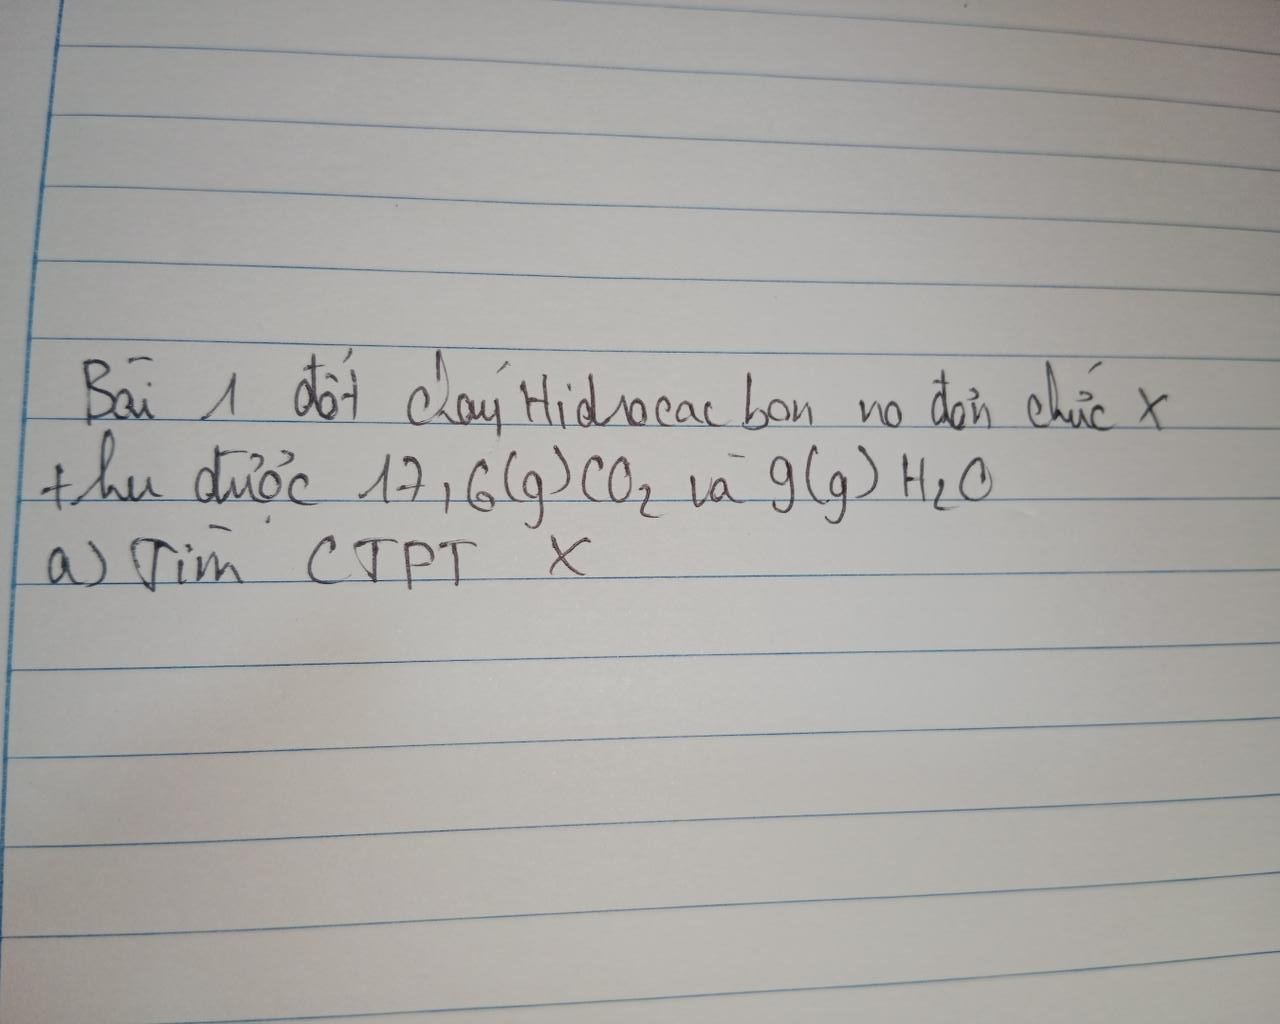 Bài 1 đốt cháy Hidrocacbon no đơn chức X
thu được 17,6(g) CO₂ và 9(g) H₂O
a) Tìm CTPT X